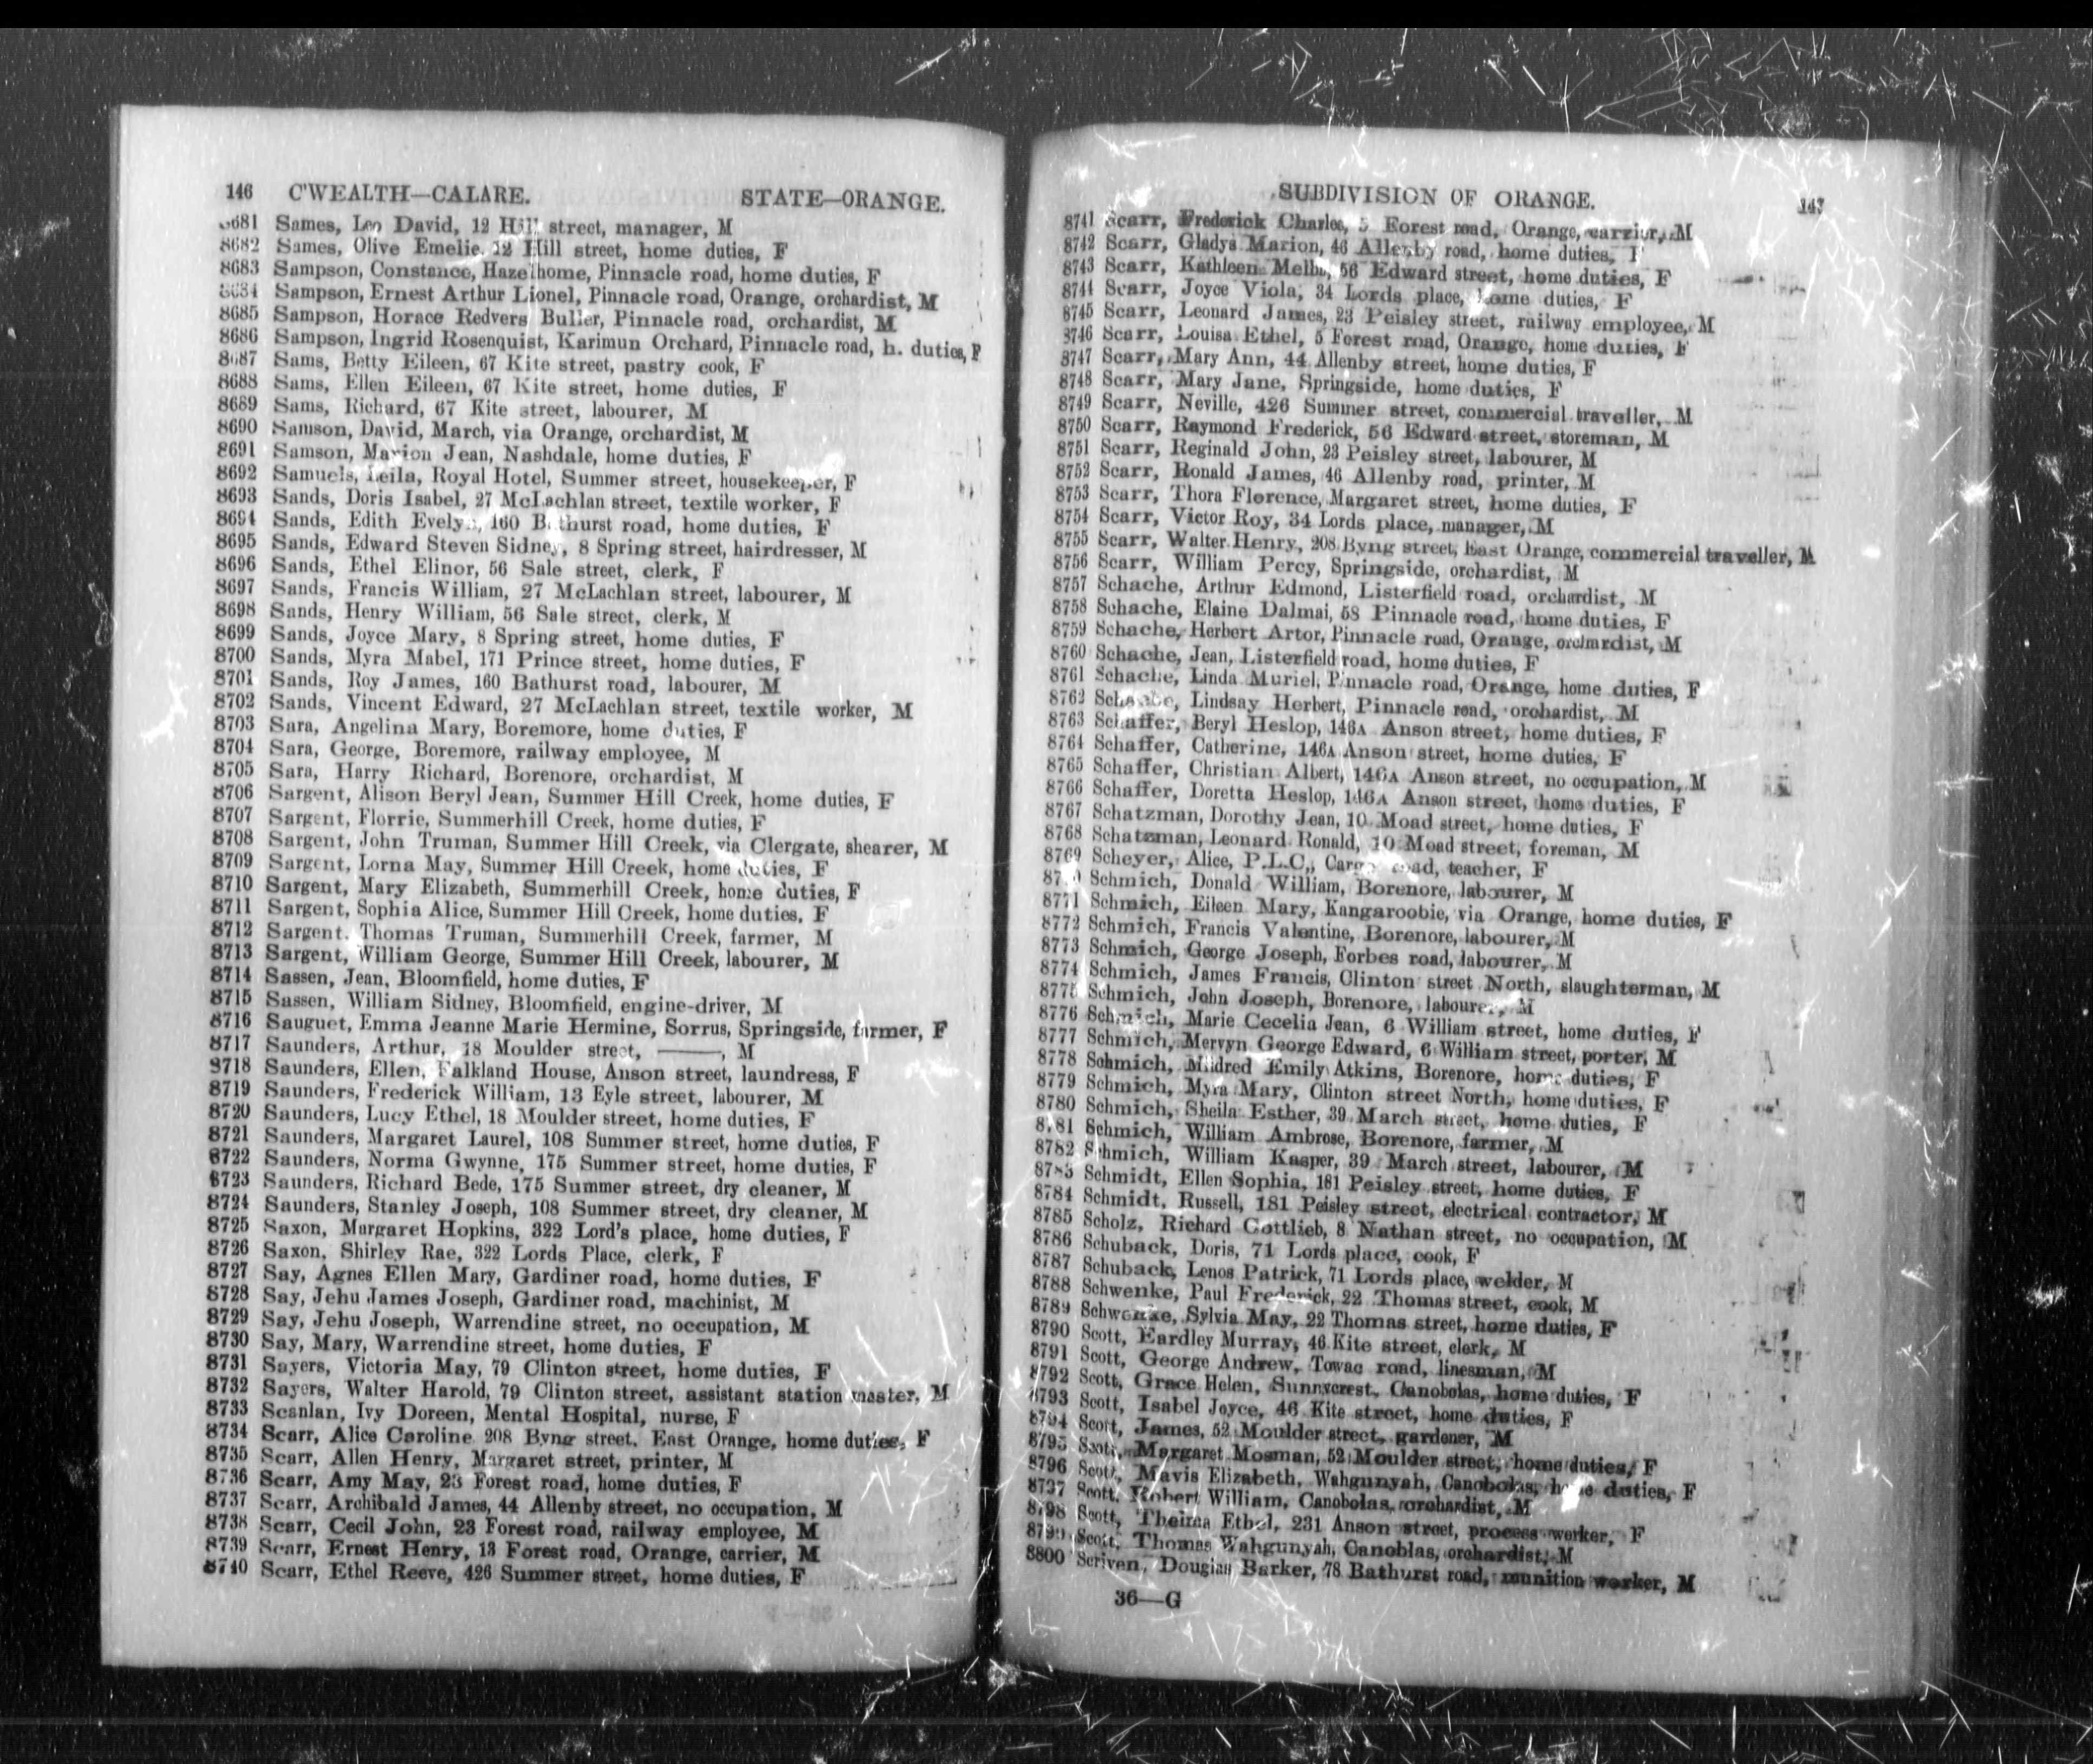 146 C'WEALTH—CALARE. STATE—ORANGE.
8681 Sames, Leo David, 12 Hill street, manager, M
8682 Sames, Olive Emelie, 12 Hill street, home duties, F
8683 Sampson, Constance, Hazelhome, Pinnacle road, home duties, F
8684 Sampson, Ernest Arthur Lionel, Pinnacle road, Orange, orchardist, M
8685 Sampson, Horace Redvers Buller, Pinnacle road, orchardist, M
8686 Sampson, Ingrid Rosenquist, Karimun Orchard, Pinnacle road, h. duties, F
8687 Sams, Betty Eileen, 67 Kite street, pastry cook, F
8688 Sams, Ellen Eileen, 67 Kite street, home duties, F
8689 Sams, Richard, 67 Kite street, labourer, M
8690 Samson, David, March, via Orange, orchardist, M
8691 Samson, Marion Jean, Nashdale, home duties, F
8692 Samuels, Leila, Royal Hotel, Summer street, housekeeper, F
8693 Sands, Doris Isabel, 27 McLachlan street, textile worker, F
8694 Sands, Edith Evelyn, 160 Bathurst road, home duties, F
8695 Sands, Edward Steven Sidney, 8 Spring street, hairdresser, M
8696 Sands, Ethel Elinor, 56 Sale street, clerk, F
8697 Sands, Francis William, 27 McLachlan street, labourer, M
8698 Sands, Henry William, 56 Sale street, clerk, M
8699 Sands, Joyce Mary, 8 Spring street, home duties, F
8700 Sands, Myra Mabel, 171 Prince street, home duties, F
8701 Sands, Roy James, 160 Bathurst road, labourer, M
8702 Sands, Vincent Edward, 27 McLachlan street, textile worker, M
8703 Sara, Angelina Mary, Boremore, home duties, F
8704 Sara, George, Boremore, railway employee, M
8705 Sara, Harry Richard, Borenore, orchardist, M
8706 Sargent, Alison Beryl Jean, Summer Hill Creek, home duties, F
8707 Sargent, Florrie, Summerhill Creek, home duties, F
8708 Sargent, John Truman, Summer Hill Creek, via Clergate, shearer, M
8709 Sargent, Lorna May, Summer Hill Creek, home duties, F
8710 Sargent, Mary Elizabeth, Summerhill Creek, home duties, F
8711 Sargent, Sophia Alice, Summer Hill Creek, home duties, F
8712 Sargent, Thomas Truman, Summerhill Creek, farmer, M
8713 Sargent, William George, Summer Hill Creek, labourer, M
8714 Sassen, Jean, Bloomfield, home duties, F
8715 Sassen, William Sidney, Bloomfield, engine-driver, M
8716 Sauguet, Emma Jeanne Marie Hermine, Sorrus, Springside, farmer, F
8717 Saunders, Arthur, 18 Moulder street, ———, M
8718 Saunders, Ellen, Falkland House, Anson street, laundress, F
8719 Saunders, Frederick William, 13 Eyle street, labourer, M
8720 Saunders, Lucy Ethel, 18 Moulder street, home duties, F
8721 Saunders, Margaret Laurel, 108 Summer street, home duties, F
8722 Saunders, Norma Gwynne, 175 Summer street, home duties, F
8723 Saunders, Richard Bede, 175 Summer street, dry cleaner, M
8724 Saunders, Stanley Joseph, 108 Summer street, dry cleaner, M
8725 Saxon, Margaret Hopkins, 322 Lord's place, home duties, F
8726 Saxon, Shirley Rae, 322 Lords Place, clerk, F
8727 Say, Agnes Ellen Mary, Gardiner road, home duties, F
8728 Say, Jehu James Joseph, Gardiner road, machinist, M
8729 Say, Jehu Joseph, Warrendine street, no occupation, M
8730 Say, Mary, Warrendine street, home duties, F
8731 Sayers, Victoria May, 79 Clinton street, home duties, F
8732 Sayers, Walter Harold, 79 Clinton street, assistant station master, M
8733 Scanlan, Ivy Doreen, Mental Hospital, nurse, F
8734 Scarr, Alice Caroline 208 Byng street, East Orange, home duties, F
8735 Scarr, Allen Henry, Margaret street, printer, M
8736 Scarr, Amy May, 23 Forest road, home duties, F
8737 Scarr, Archibald James, 44 Allenby street, no occupation, M
8738 Scarr, Cecil John, 23 Forest road, railway employee, M
8739 Scarr, Ernest Henry, 13 Forest road, Orange, carrier, M
8740 Scarr, Ethel Reeve, 426 Summer street, home duties, F
SUBDIVISION OF ORANGE. 147
8741 Scarr, Frederick Charles, 5 Forest road, Orange, carrier, M
8742 Scarr, Gladys Marion, 46 Allenby road, home duties, F
8743 Scarr, Kathleen Melba, 56 Edward street, home duties, F
8744 Scarr, Joyce Viola, 34 Lords place, home duties, F
8745 Scarr, Leonard James, 23 Peisley street, railway employee, M
8746 Scarr, Louisa Ethel, 5 Forest road, Orange, home duties, F
8747 Scarr, Mary Ann, 44 Allenby street, home duties, F
8748 Scarr, Mary Jane, Springside, home duties, F
8749 Scarr, Neville, 426 Summer street, commercial traveller, M
8750 Scarr, Raymond Frederick, 56 Edward street, storeman, M
8751 Scarr, Reginald John, 23 Peisley street, labourer, M
8752 Scarr, Ronald James, 46 Allenby road, printer, M
8753 Scarr, Thora Florence, Margaret street, home duties, F
8754 Scarr, Victor Roy, 34 Lords place, manager, M
8755 Scarr, Walter Henry, 208 Byng street, East Orange, commercial traveller, M
8756 Scarr, William Percy, Springside, orchardist, M
8757 Schache, Arthur Edmond, Listerfield road, orchardist, M
8758 Schache, Elaine Dalmai, 58 Pinnacle road, home duties, F
8759 Schache, Herbert Artor, Pinnacle road, Orange, orchardist, M
8760 Schache, Jean, Listerfield road, home duties, F
8761 Schache, Linda Muriel, Pinnacle road, Orange, home duties, F
8762 Schache, Lindsay Herbert, Pinnacle road, orchardist, M
8763 Schaffer, Beryl Heslop, 146A Anson street, home duties, F
8764 Schaffer, Catherine, 146A Anson street, home duties, F
8765 Schaffer, Christian Albert, 146A Anson street, no occupation, M
8766 Schaffer, Doretta Heslop, 146A Anson street, home duties, F
8767 Schatzman, Dorothy Jean, 10 Moad street, home duties, F
8768 Schatzman, Leonard Ronald, 10 Moad street, foreman, M
8769 Scheyer, Alice, P.L.C., Cargo road, teacher, F
8770 Schmich, Donald William, Borenore, labourer, M
8771 Schmich, Eileen Mary, Kangaroobie, via Orange, home duties, F
8772 Schmich, Francis Valentine, Borenore, labourer, M
8773 Schmich, George Joseph, Forbes road, labourer, M
8774 Schmich, James Francis, Clinton street North, slaughterman, M
8775 Schmich, John Joseph, Borenore, labourer, M
8776 Schmich, Marie Cecelia Jean, 6 William street, home duties, F
8777 Schmich, Mervyn George Edward, 6 William street, porter, M
8778 Schmich, Mildred Emily Atkins, Borenore, home duties, F
8779 Schmich, Myra Mary, Clinton street North, home duties, F
8780 Schmich, Sheila Esther, 39 March street, home duties, F
8781 Schmich, William Ambrose, Borenore, farmer, M
8782 Schmich, William Kasper, 39 March street, labourer, M
8783 Schmidt, Ellen Sophia, 181 Peisley street, home duties, F
8784 Schmidt, Russell, 181 Peisley street, electrical contractor, M
8785 Scholz, Richard Gottlieb, 8 Nathan street, no occupation, M
8786 Schuback, Doris, 71 Lords place, cook, F
8787 Schuback, Lenos Patrick, 71 Lords place, welder, M
8788 Schwenke, Paul Frederick, 22 Thomas street, cook, M
8789 Schwenke, Sylvia May, 22 Thomas street, home duties, F
8790 Scott, Eardley Murray, 46 Kite street, clerk, M
8791 Scott, George Andrew, Towac road, linesman, M
8792 Scott, Grace Helen, Sunnycrest, Canobolas, home duties, F
8793 Scott, Isabel Joyce, 46 Kite street, home duties, F
8794 Scott, James, 52 Moulder street, gardener, M
8795 Scott, Margaret Mosman, 52 Moulder street, home duties, F
8796 Scott, Mavis Elizabeth, Wahgunyah, Canobolas, home duties, F
8797 Scott, Robert William, Canobolas, orchardist, M
8798 Scott, Thelma Ethel, 231 Anson street, process worker, F
8799 Scott, Thomas Wahgunyah, Canoblas, orchardist, M
8800 Scriven, Douglas Barker, 78 Bathurst road, munition worker, M
36—G